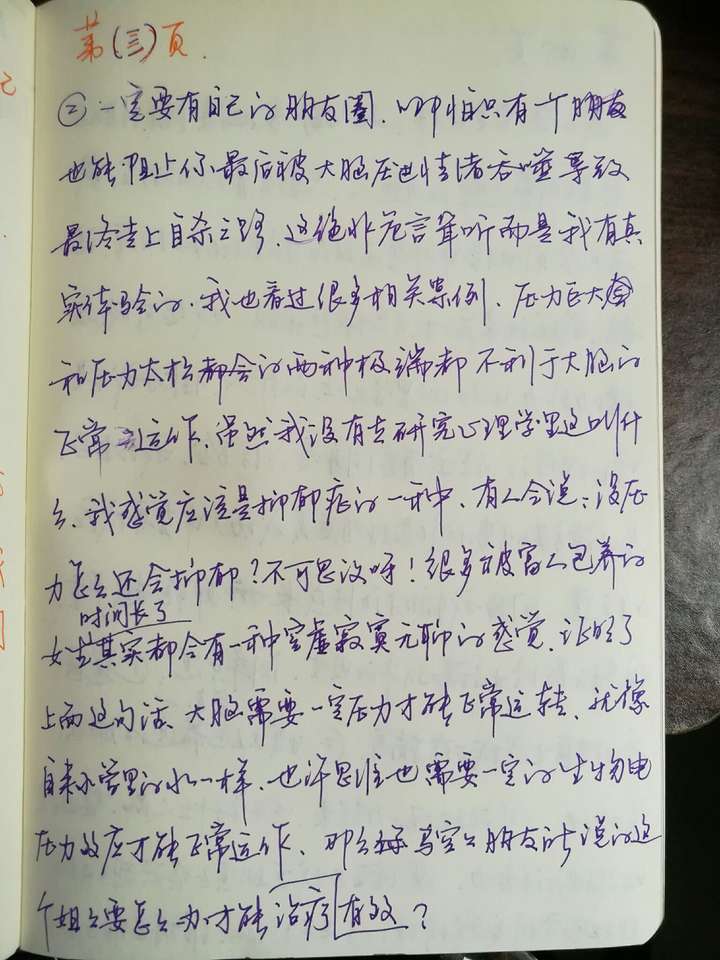 第(三)页.
② 一定要有自己的朋友圈. 哪怕只有一个朋友
也能阻止你最后被大脑压迫情绪吞噬导致
最终走上自杀之路. 这绝非危言耸听而是我有真
实体验的. 我也看过很多相关案例. 压力巨大
和压力太松都会的两种极端都不利于大脑的
正常运作. 虽然我没有去研究心理学里这叫什
么. 我感觉应该是抑郁症的一种. 有人会说: 没压
力怎么还会抑郁? 不可思议呀! 很多被富人包养的
时间长了
女生其实都会有一种空虚寂寞无聊的感觉. 证明了
上面这句话. 大脑需要一定压力才能正常运转. 就像
自来水管里的水一样. 也许思维也需要一定的生物电
压力效应才能正常运作. 那么 空 朋友 说的这
个姐姐要怎么办才能治疗有效?